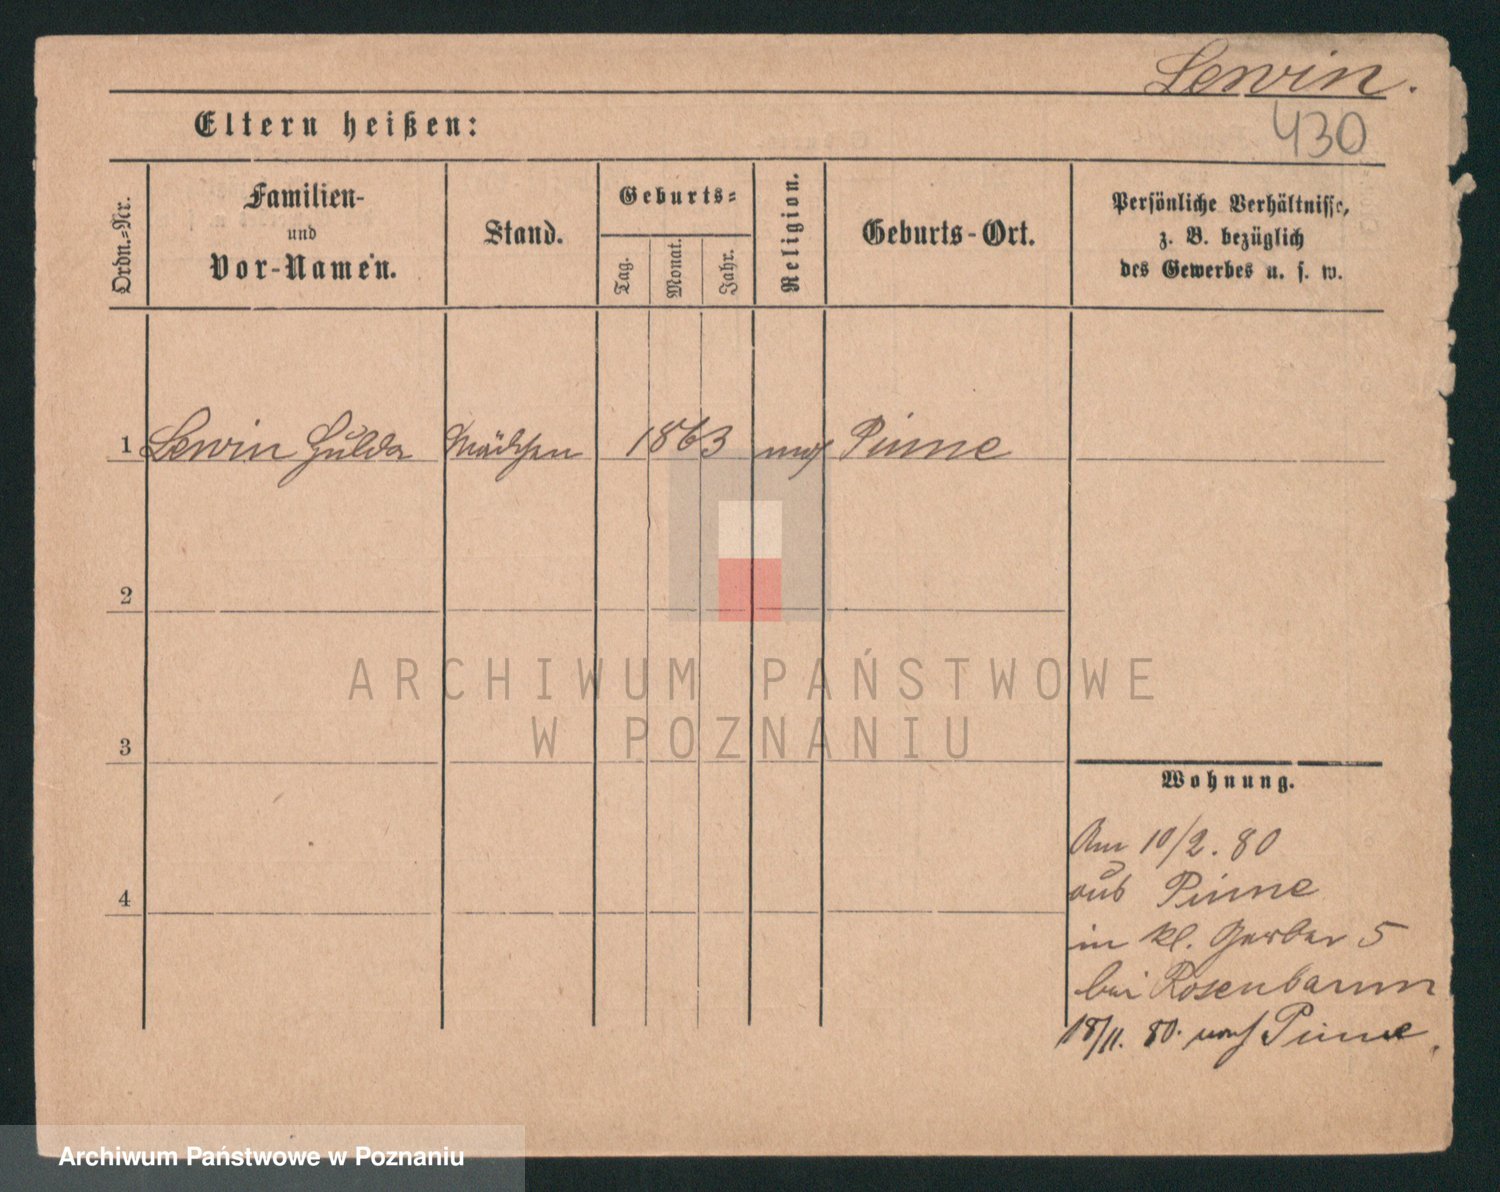 Lewin.
430
Eltern heißen:
Ordn.-Nr.
Familien-
und
Vor-Namen.
Stand.
Geburts-
Tag.
Monat.
Jahr.
Religion.
Geburts-Ort.
Persönliche Verhältnisse,
z. B. bezüglich
des Gewerbes u. s. w.
1 Lewin Hulda Mädchen 1863 mos Pinne
2
3
4
Wohnung.
Am 10/2. 80
aus Pinne
in kl. Gerber 5
bei Rosenbaum
18/11. 80. nach Pinne.
ARCHIWUM PAŃSTWOWE
W POZNANIU
Archiwum Państwowe w Poznaniu